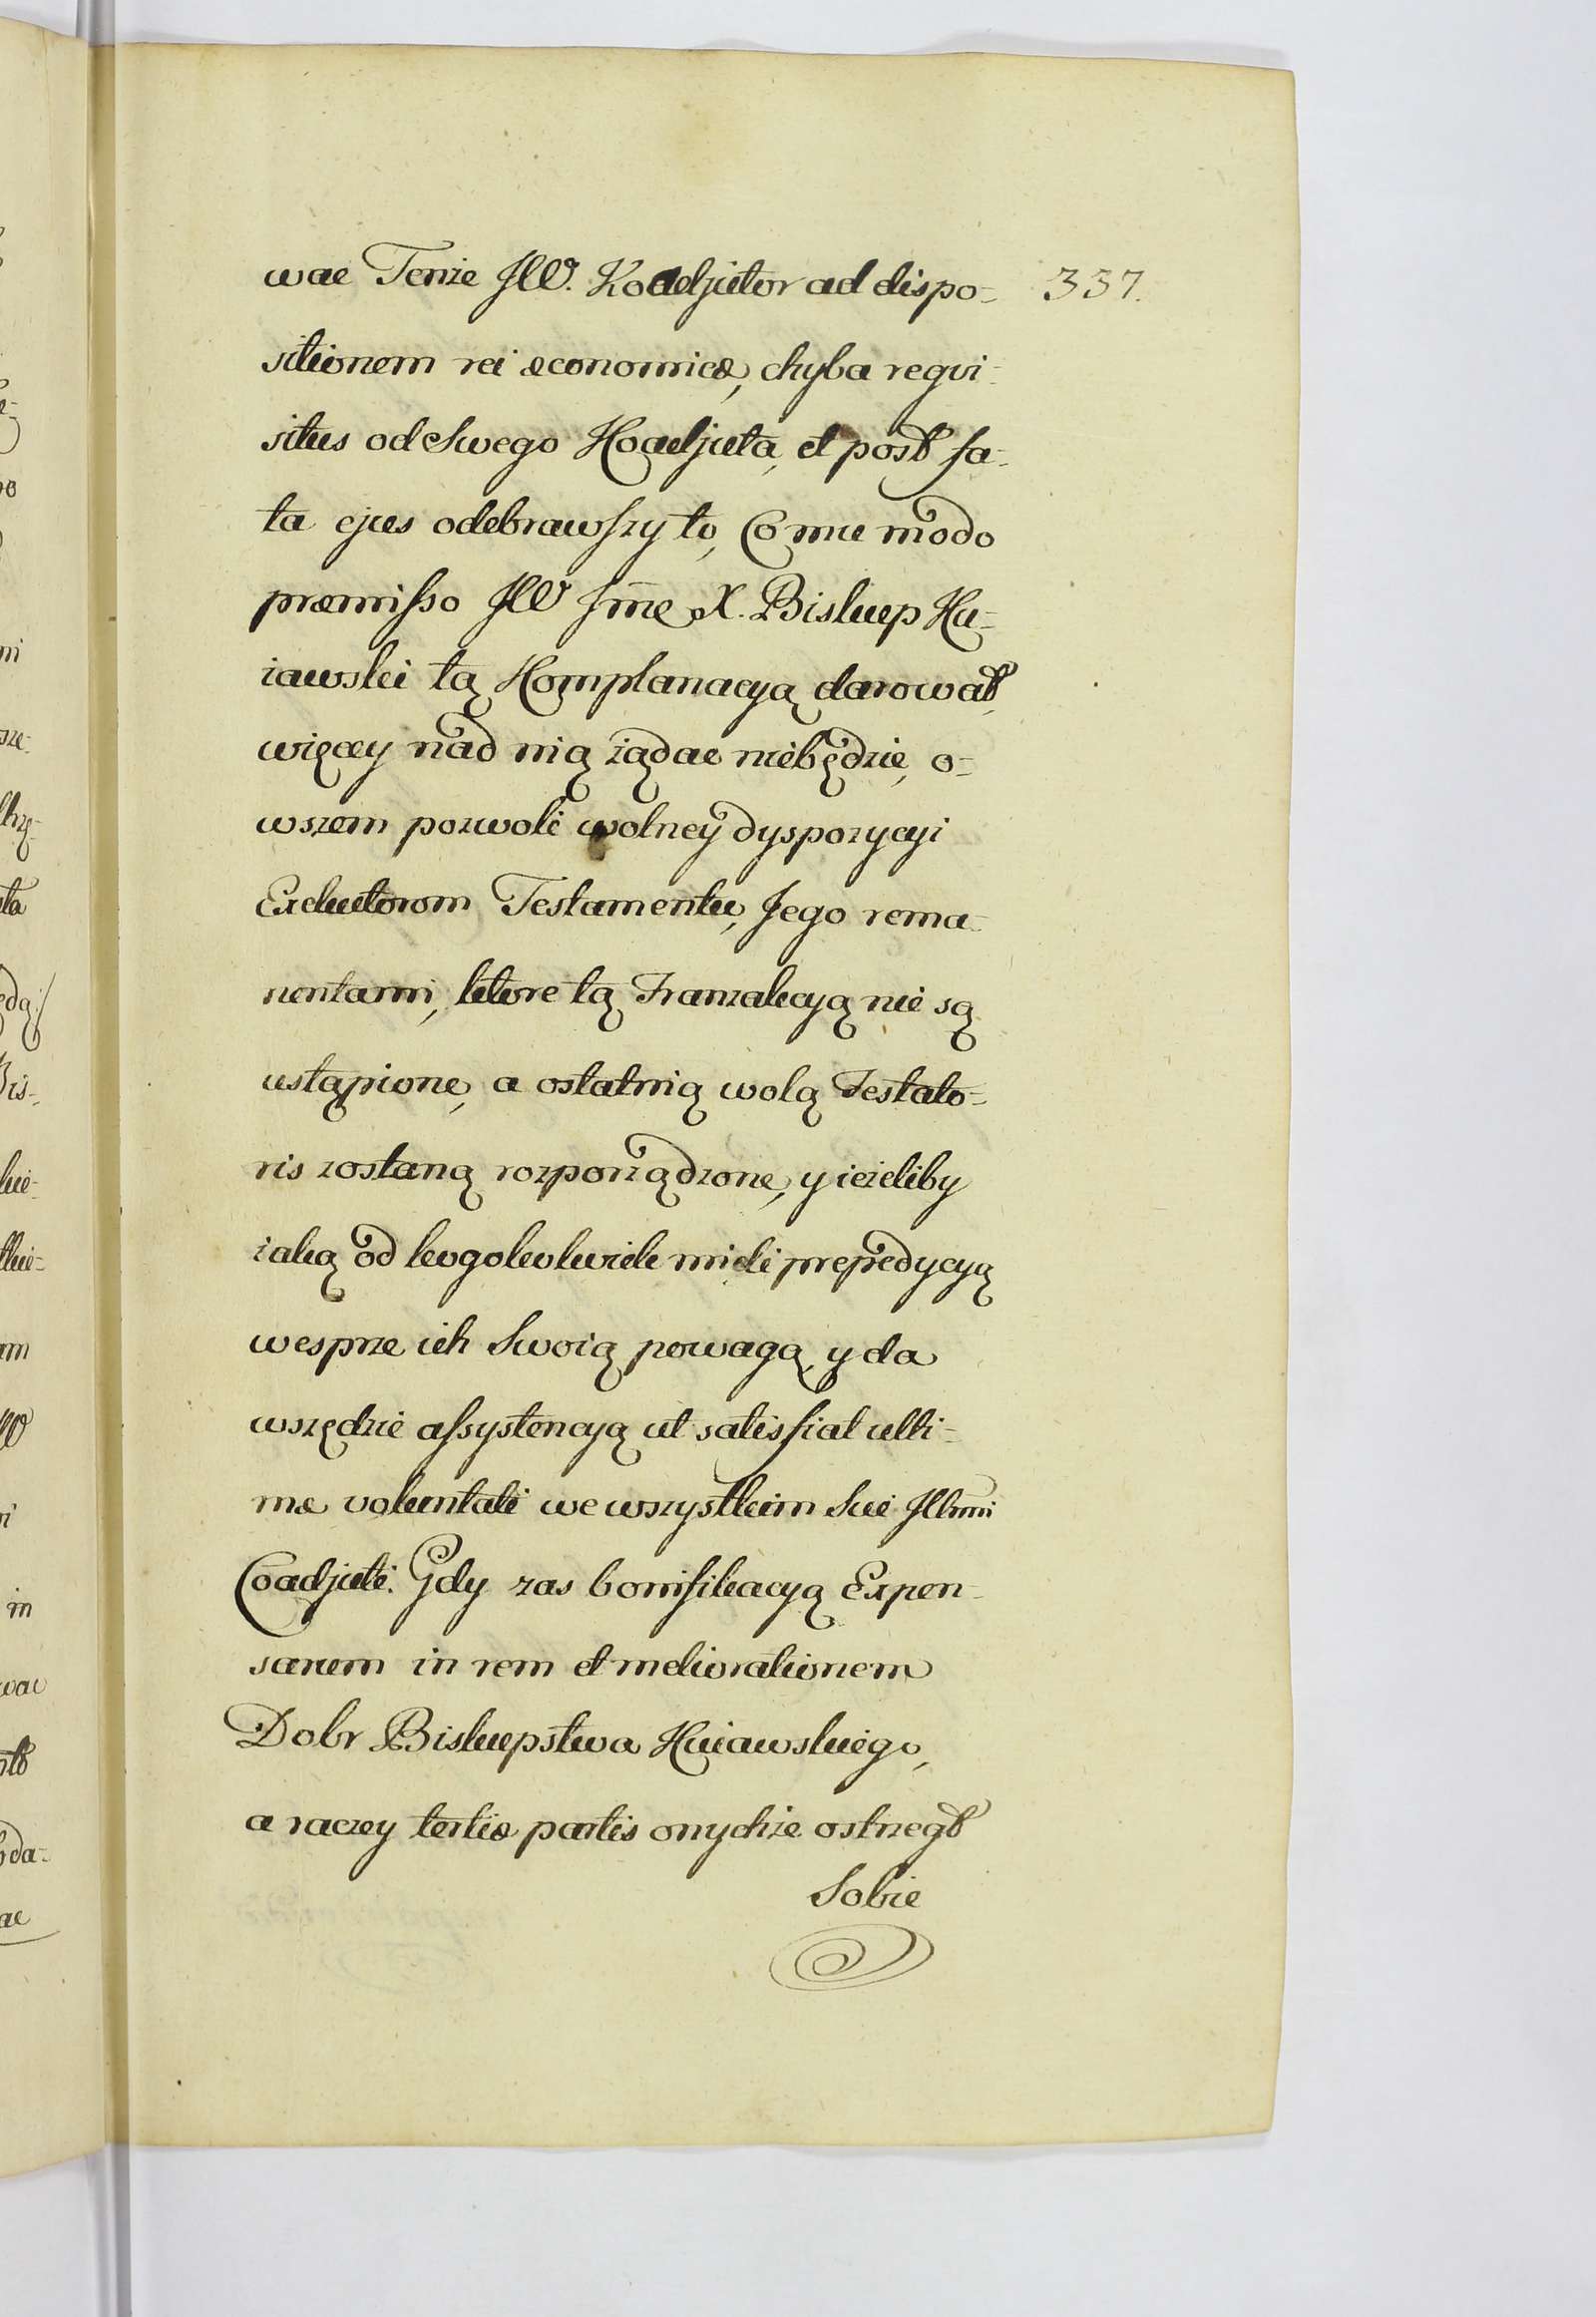 wac Tenże JW. Koadjutor ad dispo- 337.
sitionem rei æconomicæ, chyba reqvi-
situs od Swego Koadjuta, et post fa-
ta ejus odebrawszy to, Co mu modo
præmisso JW Jme X. Biskup Ku-
iawski tą Komplanacyą darował,
więcey nad nią żądac niebędzie, o-
wszem pozwoli wolney dyspozycyi
Exekutorom Testamentu, Jego rema-
nentami, ktore tą Tranzakcyą nie są
ustąpione, a ostatnią wolą Testato-
ris zostaną rozporządzone, y ieżeliby
iaką od kogokolwiek mieli prepedycyą
wesprze ich Swoią powagą, y da
wszędzie assystencyą ut satisfiat ulti-
mæ voluntati we wszystkim Sui Jllmi
Coadjuti. Gdy zas bonifikacyą Expen-
sarum in rem et meliorationem
Dobr Biskupstwa Kuiawskiego,
a raczey tertiæ partis onychże ostrzegł
Sobie